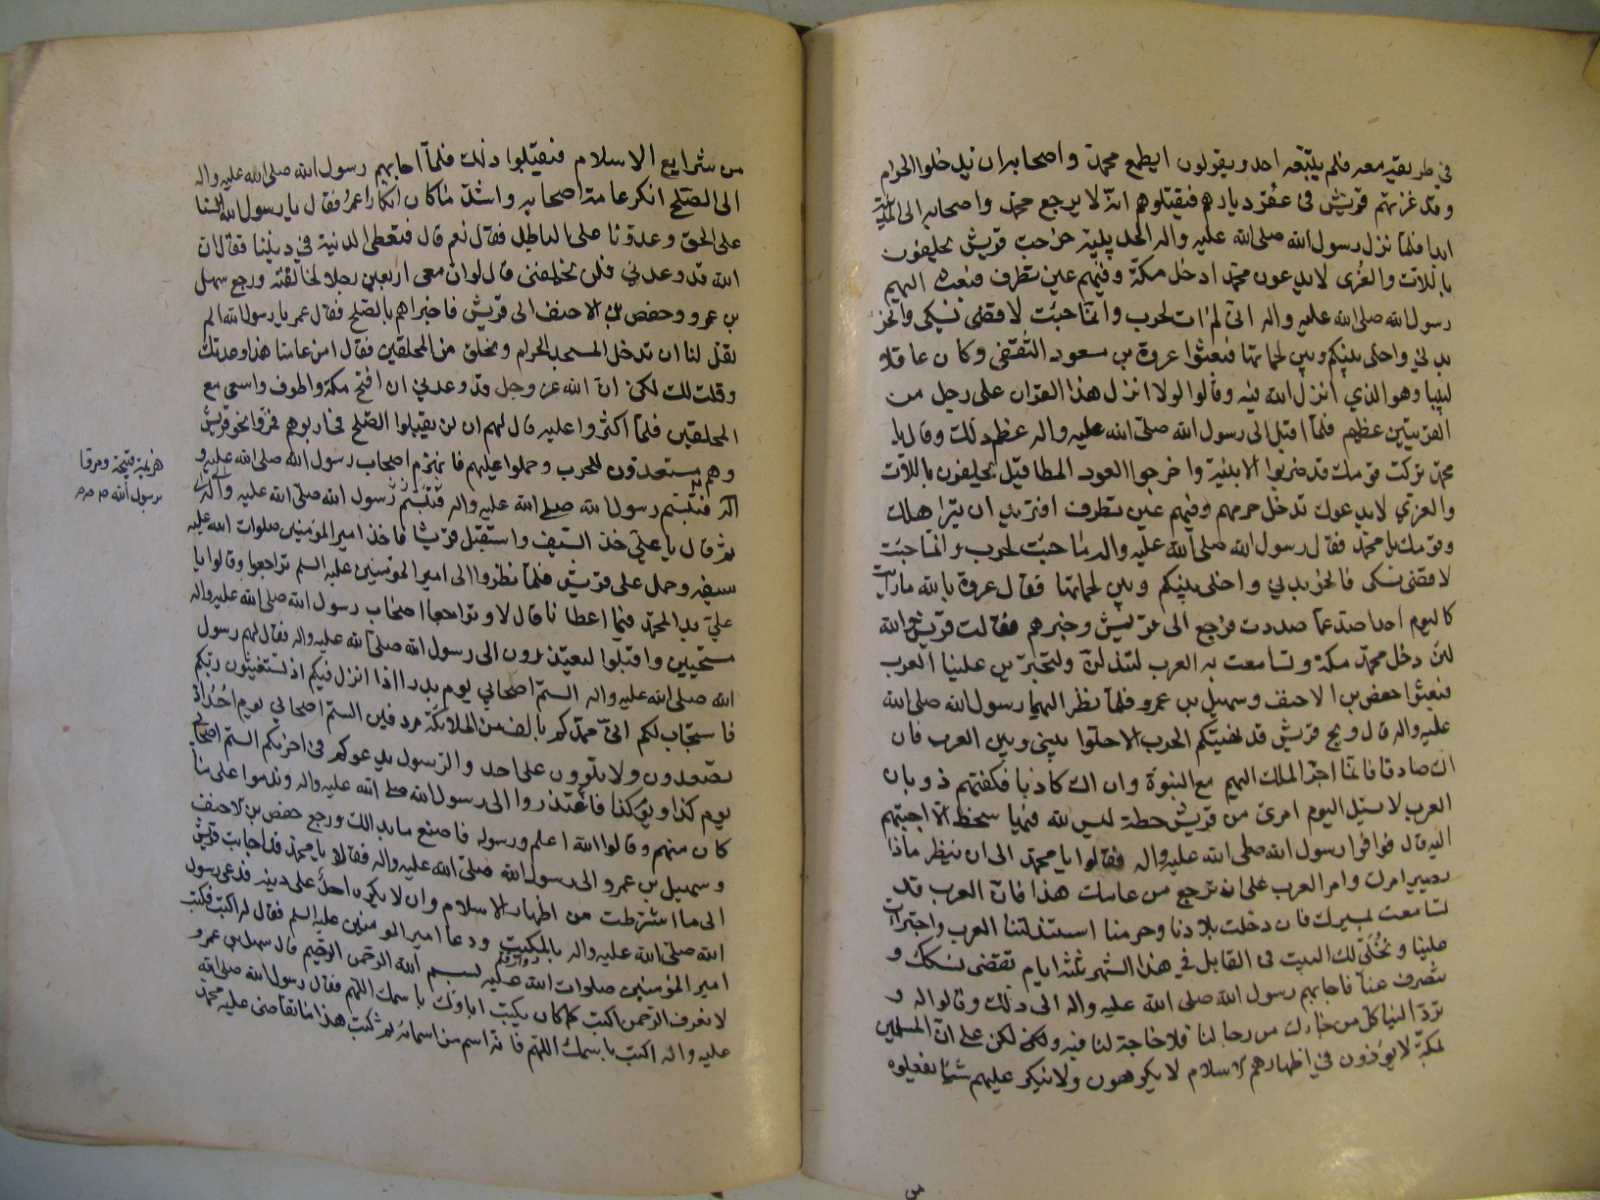 في طريقه معه فلم يتبعه احد ويقولون ايطمع محمد واصحابه ان يدخلوا الحرام
وقد غزتهم قريش في عقر ديارهم فيقتلوهم انه لا يرجع محمد واصحابه الى المدينة
ابدا فلما نزل رسول الله صلى الله عليه واله الحديبية خرجت قريش يحلفون
باللات والعزى لا يدعون محمد ادخل مكة وفيهم عين تطرف فبعث اليهم
رسول الله صلى الله عليه واله انى لم ات لحرب وانما جئت لاقضى نسكى وانحر
بدني واخلى بينكم وبين لحماتها فبعثوا عروة بن مسعود الثقفى وكان عاقلا
لبيبا وهو الذي انزل الله فيه وقالوا لولا انزل هذا القران على رجل من
القريتين عظيم فلما اقبل الى رسول الله صلى الله عليه واله عظم ذلك وقال يا
محمد تركت قومك قد ضربوا الابنية واخرجوا العود المطافيل يحلفون باللات
والعزى لا يدعوك تدخل حرمهم وفيهم عين تطرف افتريد ان تبير اهلك
وقومك يا محمد فقال رسول الله صلى الله عليه واله ما جئت لحرب وانما جئت
لاقضى نسكى فانحر بدني واخلى بينكم وبين لحماتها فقال عروة بالله ما رايت
كاليوم احدا صد عما صددت فرجع الى قريش وخبرهم فقالت قريش والله
لئن دخل محمد مكة وتسامعت به العرب لنذلن ولتجترين علينا العرب
فبعثوا حفص بن الاحنف وسهيل بن عمرو فلما نظر اليهما رسول الله صلى الله
عليه واله قال ويح قريش قد نهيتكم الحرب الا خلوا بينى وبين العرب فان
اك صادقا فانما اجر الملك اليهم مع النبوة وان اك كاذبا فكفتهم ذوبان
العرب لا يسئل اليوم امرئ من قريش خطة ليس لله فيها سخط الا اجبتهم
اليه قال فوافوا رسول الله صلى الله عليه واله فقالوا يا محمد الى ان ننظر ماذا
يصير امرك وامر العرب على ان ترجع من عامك هذا فان العرب قد
تسامعت بمسيرك فان دخلت بلادنا وحرمنا استذلتنا العرب واجترات
علينا ونخلى لك البيت فى القابل في هذا الشهر ثلثة ايام تقضى نسكك و
تنصرف عنا فاجابهم رسول الله صلى الله عليه واله الى ذلك وقالوا له و
ترد الينا كل من جاءك من رجالنا فلا حاجة لنا فيه ولكن على ان المسلمين
بمكة لا يؤذون في اظهارهم الاسلام لا يكرهون ولا ينكر عليهم شئ يفعلوه
من
من شرايع الاسلام فقبلوا ذلك فلما اجابهم رسول الله صلى الله عليه واله
الى الصلح انكر عامة اصحابه واشد ما كان انكارا عمر فقال يا رسول الله السنا
على الحق وعدونا على الباطل فقال نعم قال فنعطى الدنية في ديننا فقال ان
الله قد وعدني فلن يخلفنى قال لو ان معى اربعين رجلا لخالفته ورجع سهيل
بن عمرو وحفص بن الاحنف الى قريش فاخبراهم بالصلح فقال عمر يا رسول الله الم
تقل لنا ان ندخل المسجد الحرام ونحلق من المحلقين فقال امن عامنا هذا وعدتك
وقلت لك لكن ان الله عز وجل قد وعدني ان افتح مكة واطوف واسعى مع
المحلقين فلما اكثروا عليه قال لهم ان لن تقبلوا الصلح فحاربوهم فمروا نحو قريش
وهم مستعدون للحرب وحملوا عليهم فانهزم اصحاب رسول الله صلى الله عليه و
اله فتبسم رسول الله صلى الله عليه واله
ثم قال يا علي خذ السيف واستقبل قريشا فاخذ امير المؤمنين صلوات الله عليه
سيفه وحمل على قريش فلما نظروا الى امير المؤمنين عليه السلم تراجعوا وقالوا يا
علي بدا لمحمد فيما اعطانا قال لا وتراجعا اصحاب رسول الله صلى الله عليه واله
مستحيين واقبلوا يعتذرون الى رسول الله صلى الله عليه واله فقال لهم رسول
الله صلى الله عليه واله الستم اصحابي يوم بدر اذا انزل فيكم اذ تستغيثون ربكم
فاستجاب لكم انى ممدكم بالف من الملائكة مردفين الستم اصحابي يوم احد اذ
تصعدون ولا تلوون على احد والرسول يدعوكم فى اخريكم الستم اصحابي
يوم كذا ويوم كذا فاعتذروا الى رسول الله صلى الله عليه واله وندموا على ما
كان منهم وقالوا الله اعلم ورسوله فاصنع ما بدا لك ورجع حفص بن الاحنف
وسهيل بن عمرو الى رسول الله صلى الله عليه واله فقالا يا محمد قد اجابت قريش
الى ما اشترطت من اظهار الاسلام وان لا يكره احد على دينه فدعى رسول
الله صلى الله عليه واله بالمكتب ودعا امير المومنين عليه السلم فقال له اكتب فكتب
امير المؤمنين صلوات الله عليه بسم الله الرحمن الرحيم قال سهيل بن عمرو
لا نعرف الرحمن اكتب كما كان يكتب اباؤك باسمك اللهم فقال رسول الله صلى الله
عليه واله اكتب باسمك اللهم فانه اسم من اسمائه ثم كتب هذا ما تقاضى عليه محمد
هزيمة قبيحة ومرقا
برسول الله